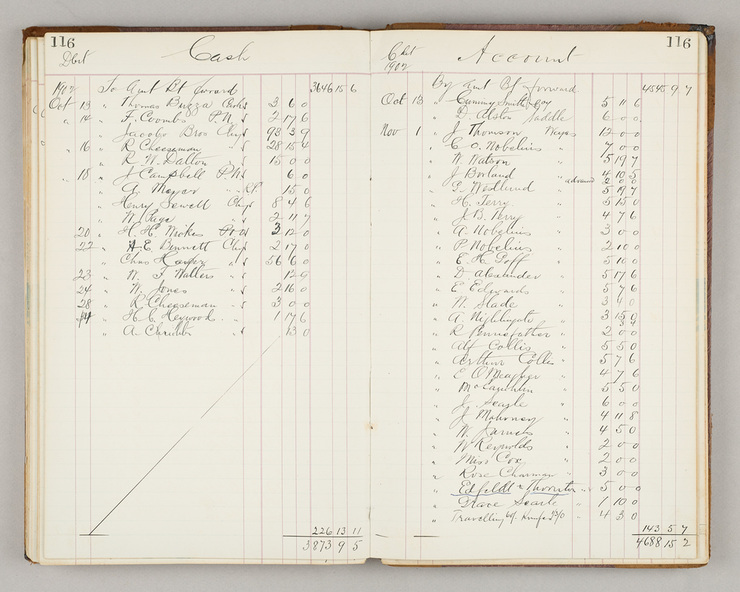 116
Dbt Cash
1902 To Amt Bt forward 3646 15 6
Oct 13 " Thomas Bugga 3 6 0
" 14 " F. Coombs P.N. 2 17 6
" Jacobs Bros Chqs 93 3 9
" 16 " R Cheeseman " 28 15 6
" R. W. Dalton " 15 0 0
" 18 " J Campbell P.N. 6 0
" A. Meyer " 15 0
" Henry Sewell Chqs 8 4 6
" W. Page " 2 11 7
20 " H. H. Wickes 3 12 0
22 " E. Bennett Chqs 2 17 0
" Chas " 56 6 0
23 " W. F. Walters " 12 9
24 " W. Jones " 2 16 0
28 " R Cheeseman " 3 0 0
" H. C. Heywood " 1 17 6
" A. " 13 0
226 13 11
3873 9 5
116
Cbt Account
1902 By Amt Cf forward 4545 9 7
Oct 13 " Cumming Smith & Coy 5 11 6
" D. Alston Saddle 6 0 0
Nov 1 " J Thomson Wages 12 0 0
" C. O. Nobelius " 7 0 0
" W Watson " 5 19 7
" J Borland " 4 10 5
" G. Westlund " advanced 2 0 0
5 19 7
" H. Terry " 5 15 0
" J. B. Terry " 4 7 6
" A Nobelius " 3 0 0
" P. Nobelius " 2 10 0
" E. H. Goff " 5 10 0
" D Alexander " 5 17 6
" E Edwards " 5 7 6
" W. Slade " 3 0
" A. Nightingale " 3 15 0
" R Pennefather " 2 0 0
" Alf Collis " 5 5 0
" Arthur Collis " 5 7 6
" E O'Meagher " 4 7 6
" McLaughlin " 5 5 0
" J. Searle " 6 0 0
" J. Mahoney " 4 11 8
" W. " 4 5 0
" W Reynolds " 2 0 0
" Miss Cox " 2 0 0
" Rose Charman " 3 0 0
" Edfeldt & Thornton " 5 0 0
" Grace Searle " 1 10 0
" Travelling 4 3 0
143 5 7
4688 15 2